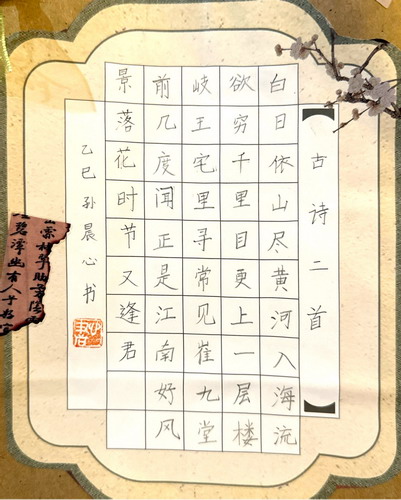 古诗二首
白日依山尽黄河入海流
欲穷千里目更上一层楼
岐王宅里寻常见崔九堂
前几度闻正是江南好风
景落花时节又逢君
乙巳孙晨心书